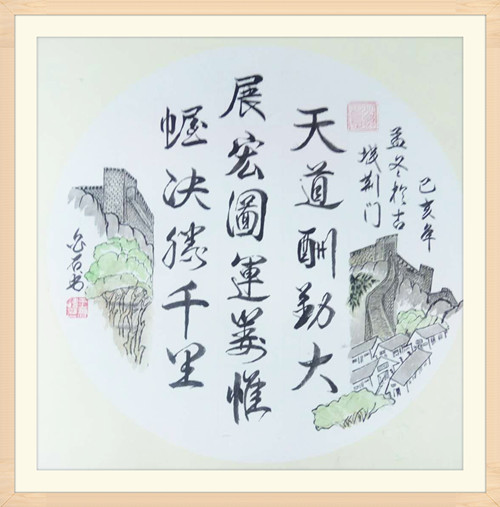 己亥年
孟冬於古
城荆门
天道酬勤大
展宏圖運筹帷
幄决勝千里
石书